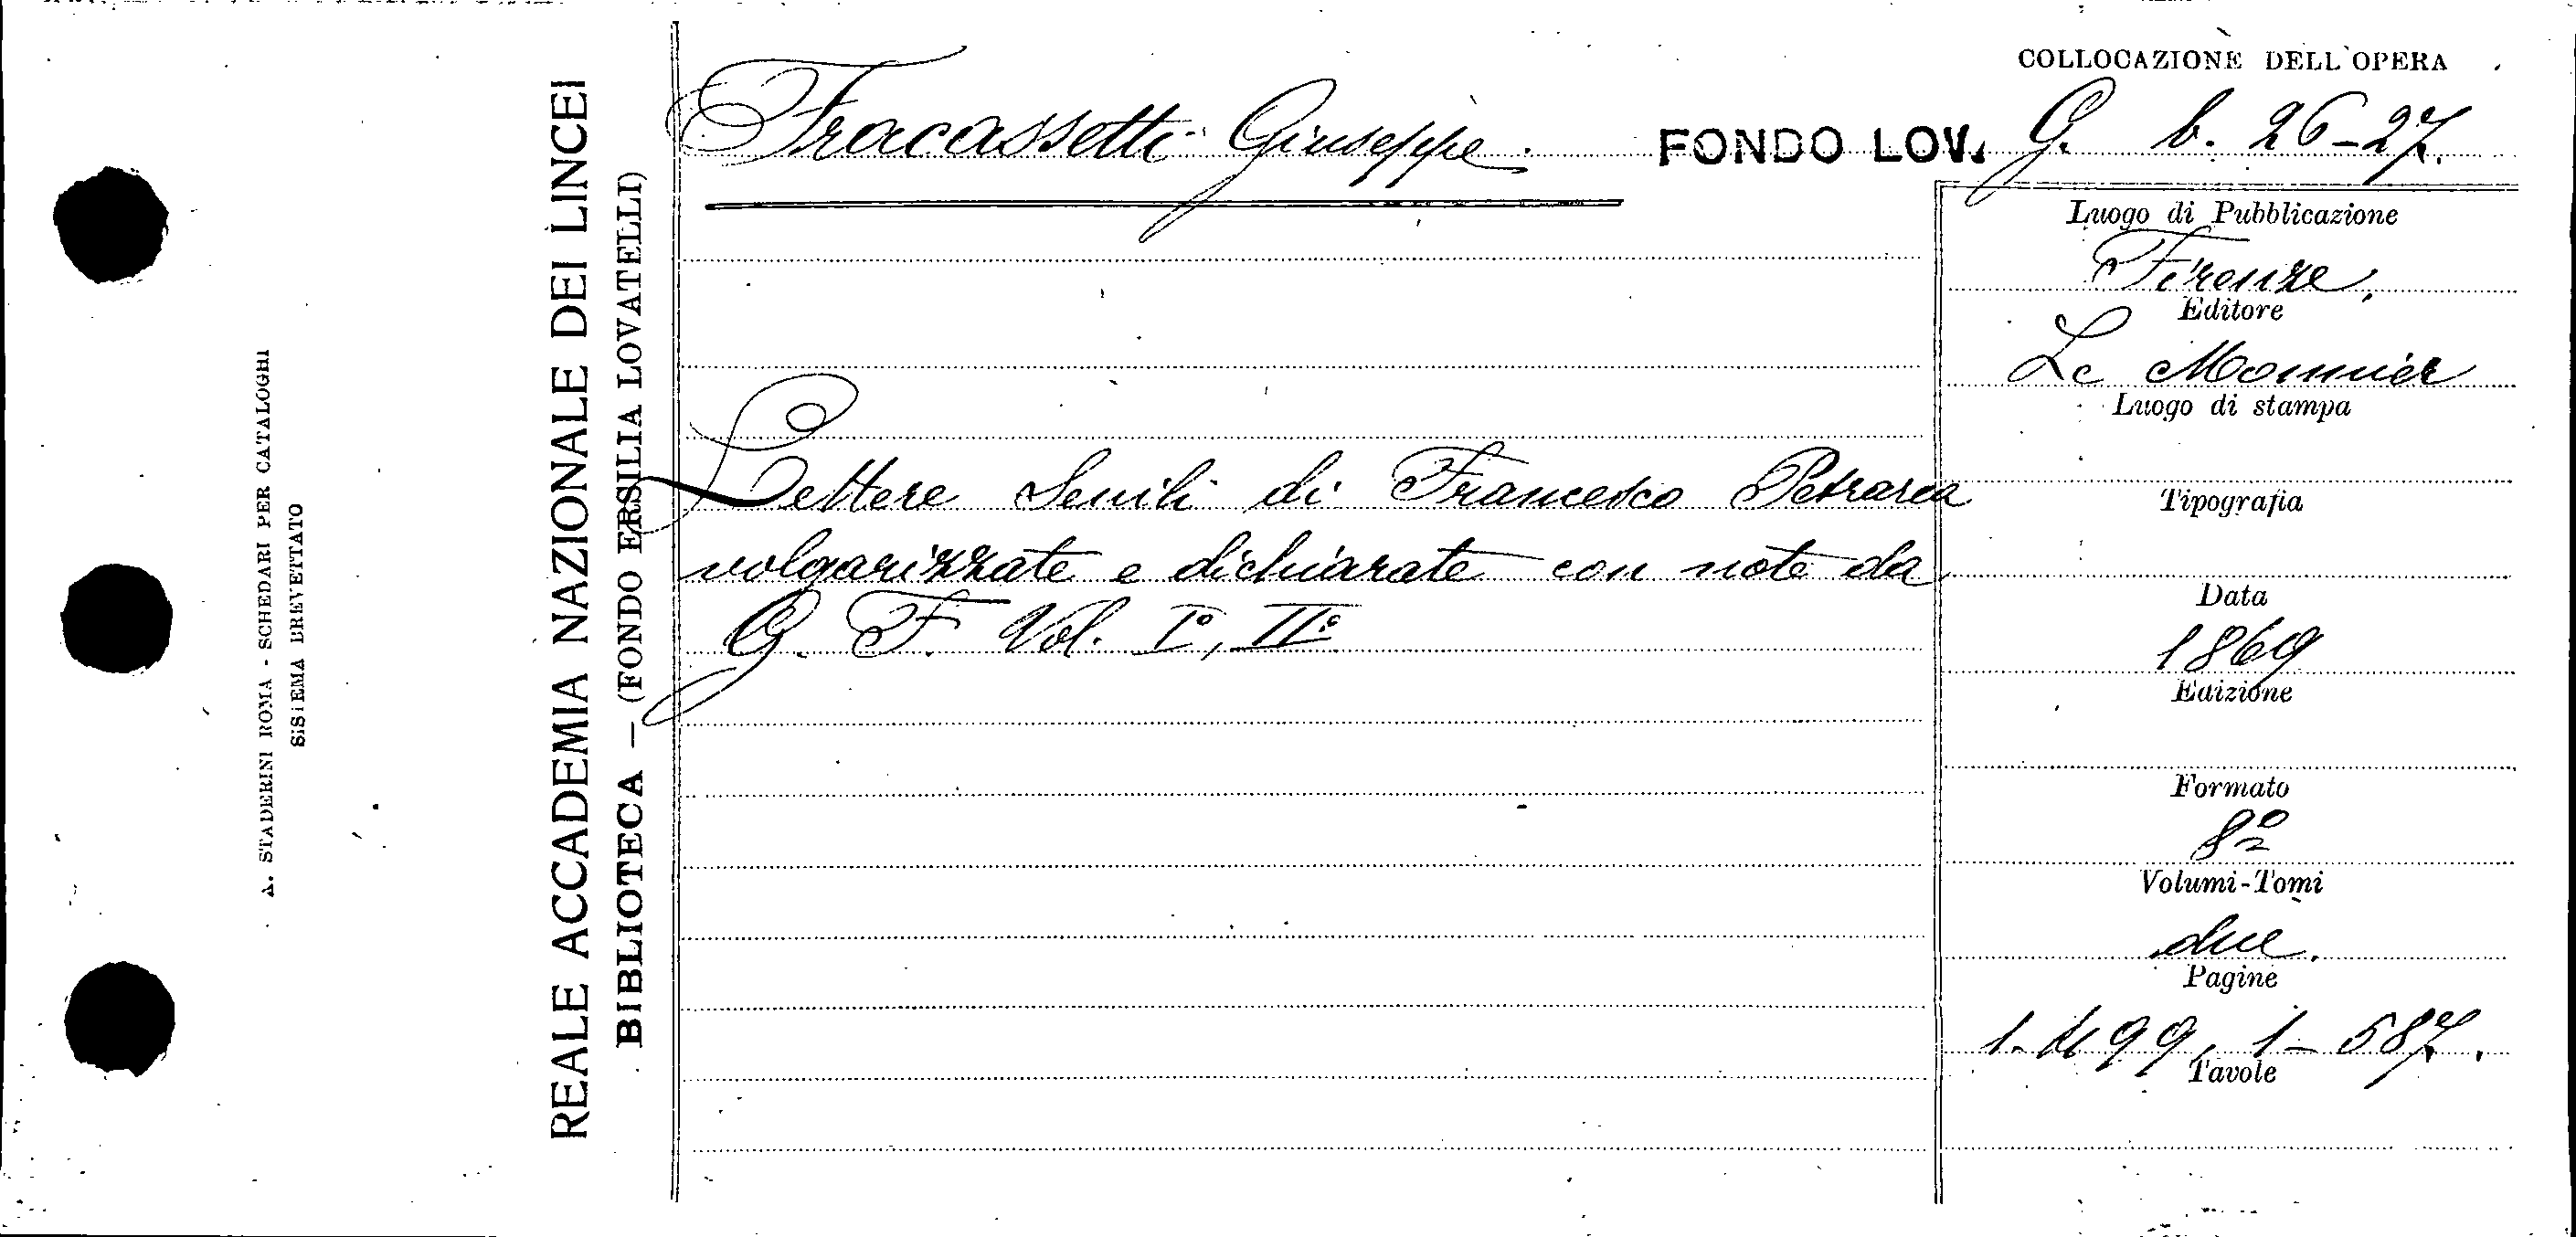 A. STADERINI ROMA - SCHEDARI PER CATALOGHI
SISTEMA BREVETTATO
REALE ACCADEMIA NAZIONALE DEI LINCEI
BIBLIOTECA — (FONDO ERSILIA LOVATELLI)
Fracassetti Giuseppe.
FONDO LOV.
COLLOCAZIONE DELL'OPERA
G. b. 26-27.
Lettere Senili di Francesco Petrarca
volgarizzate e dichiarate con note da
G. F. Vol. I°, II°
Luogo di Pubblicazione
Firenze,
Editore
Le Monnier
Luogo di stampa
Tipografia
Data
1869
Edizione
Formato
8º
Volumi-Tomi
due.
Pagine
1-499, 1-587.
Tavole